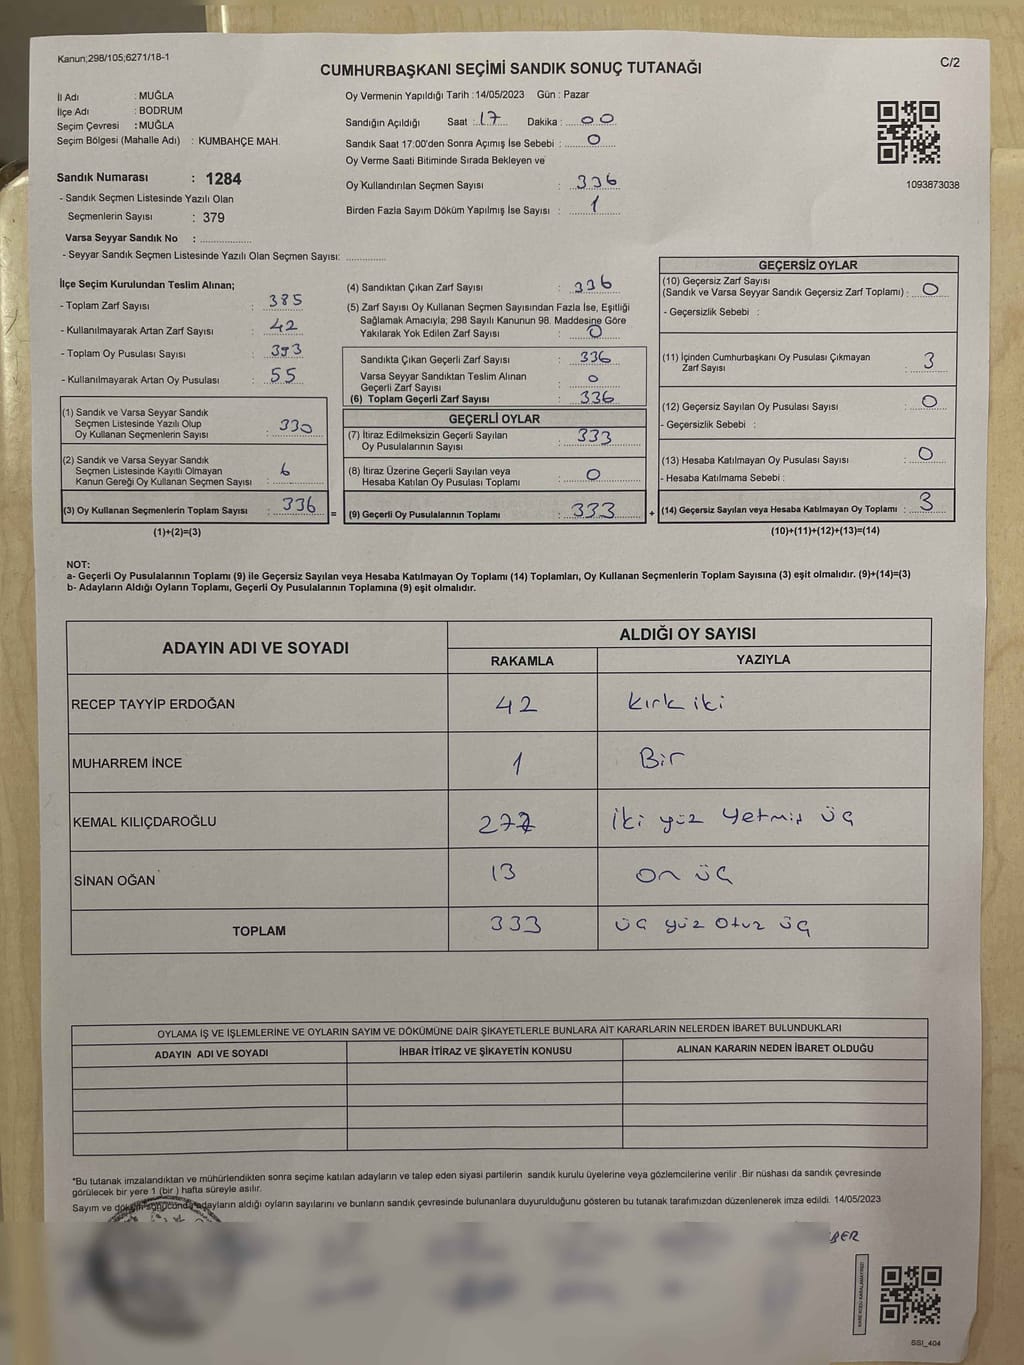 Kanun;298/105;6271/18-1
C/2
CUMHURBAŞKANI SEÇİMİ SANDIK SONUÇ TUTANAĞI
İl Adı : MUĞLA
İlçe Adı : BODRUM
Seçim Çevresi : MUĞLA
Seçim Bölgesi (Mahalle Adı) : KUMBAHÇE MAH.
Sandık Numarası : 1284
- Sandık Seçmen Listesinde Yazılı Olan
Seçmenlerin Sayısı : 379
Varsa Seyyar Sandık No : ..............
- Seyyar Sandık Seçmen Listesinde Yazılı Olan Seçmen Sayısı: ............
Oy Vermenin Yapıldığı Tarih : 14/05/2023 Gün : Pazar
Sandığın Açıldığı Saat : 17 Dakika : 00
Sandık Saat 17:00'den Sonra Açımış İse Sebebi : 0
Oy Verme Saati Bitiminde Sırada Bekleyen ve
Oy Kullandırılan Seçmen Sayısı : 336
Birden Fazla Sayım Döküm Yapılmış İse Sayısı : 1
1093873038
İlçe Seçim Kurulundan Teslim Alınan;
- Toplam Zarf Sayısı : 385
- Kullanılmayarak Artan Zarf Sayısı : 42
- Toplam Oy Pusulası Sayısı :
- Kullanılmayarak Artan Oy Pusulası : 55
(1) Sandık ve Varsa Seyyar Sandık
Seçmen Listesinde Yazılı Olup
Oy Kullanan Seçmenlerin Sayısı : 330
(2) Sandık ve Varsa Seyyar Sandık
Seçmen Listesinde Kayıtlı Olmayan
Kanun Gereği Oy Kullanan Seçmen Sayısı : 6
(3) Oy Kullanan Seçmenlerin Toplam Sayısı : 336 =
(1)+(2)=(3)
(4) Sandıktan Çıkan Zarf Sayısı : 336
(5) Zarf Sayısı Oy Kullanan Seçmen Sayısından Fazla İse, Eşitliği
Sağlamak Amacıyla; 298 Sayılı Kanunun 98. Maddesine Göre
Yakılarak Yok Edilen Zarf Sayısı : 0
Sandıkta Çıkan Geçerli Zarf Sayısı : 336
Varsa Seyyar Sandıktan Teslim Alınan
Geçerli Zarf Sayısı : 0
(6) Toplam Geçerli Zarf Sayısı : 336
GEÇERLİ OYLAR
(7) İtiraz Edilmeksizin Geçerli Sayılan
Oy Pusulalarının Sayısı : 333
(8) İtiraz Üzerine Geçerli Sayılan veya
Hesaba Katılan Oy Pusulası Toplamı : 0
(9) Geçerli Oy Pusulalarının Toplamı : 333 +
GEÇERSİZ OYLAR
(10) Geçersiz Zarf Sayısı
(Sandık ve Varsa Seyyar Sandık Geçersiz Zarf Toplamı) : 0
- Geçersizlik Sebebi :
(11) İçinden Cumhurbaşkanı Oy Pusulası Çıkmayan
Zarf Sayısı : 3
(12) Geçersiz Sayılan Oy Pusulası Sayısı : 0
- Geçersizlik Sebebi :
(13) Hesaba Katılmayan Oy Pusulası Sayısı : 0
- Hesaba Katılmama Sebebi :
(14) Geçersiz Sayılan veya Hesaba Katılmayan Oy Toplamı : 3
(10)+(11)+(12)+(13)=(14)
NOT:
a- Geçerli Oy Pusulalarının Toplamı (9) ile Geçersiz Sayılan veya Hesaba Katılmayan Oy Toplamı (14) Toplamları, Oy Kullanan Seçmenlerin Toplam Sayısına (3) eşit olmalıdır. (9)+(14)=(3)
b- Adayların Aldığı Oyların Toplamı, Geçerli Oy Pusulalarının Toplamına (9) eşit olmalıdır.
ADAYIN ADI VE SOYADI
ALDIĞI OY SAYISI
RAKAMLA YAZIYLA
RECEP TAYYİP ERDOĞAN 42 kırk iki
MUHARREM İNCE 1 Bir
KEMAL KILIÇDAROĞLU iki yüz yetmiş üç
SİNAN OĞAN 13 on üç
TOPLAM 333 üç yüz otuz üç
OYLAMA İŞ VE İŞLEMLERİNE VE OYLARIN SAYIM VE DÖKÜMÜNE DAİR ŞİKAYETLERLE BUNLARA AİT KARARLARIN NELERDEN İBARET BULUNDUKLARI
ADAYIN ADI VE SOYADI İHBAR İTİRAZ VE ŞİKAYETİN KONUSU ALINAN KARARIN NEDEN İBARET OLDUĞU
*Bu tutanak imzalandıktan ve mühürlendikten sonra seçime katılan adayların ve talep eden siyasi partilerin sandık kurulu üyelerine veya gözlemcilerine verilir .Bir nüshası da sandık çevresinde
görülecek bir yere 1 (bir ) hafta süreyle asılır.
Sayım ve döküm sonucunda adayların aldığı oyların sayılarını ve bunların sandık çevresinde bulunanlara duyurulduğunu gösteren bu tutanak tarafımızdan düzenlenerek imza edildi. 14/05/2023
KARE KODU KARALAMAYINIZ!
SSI_404